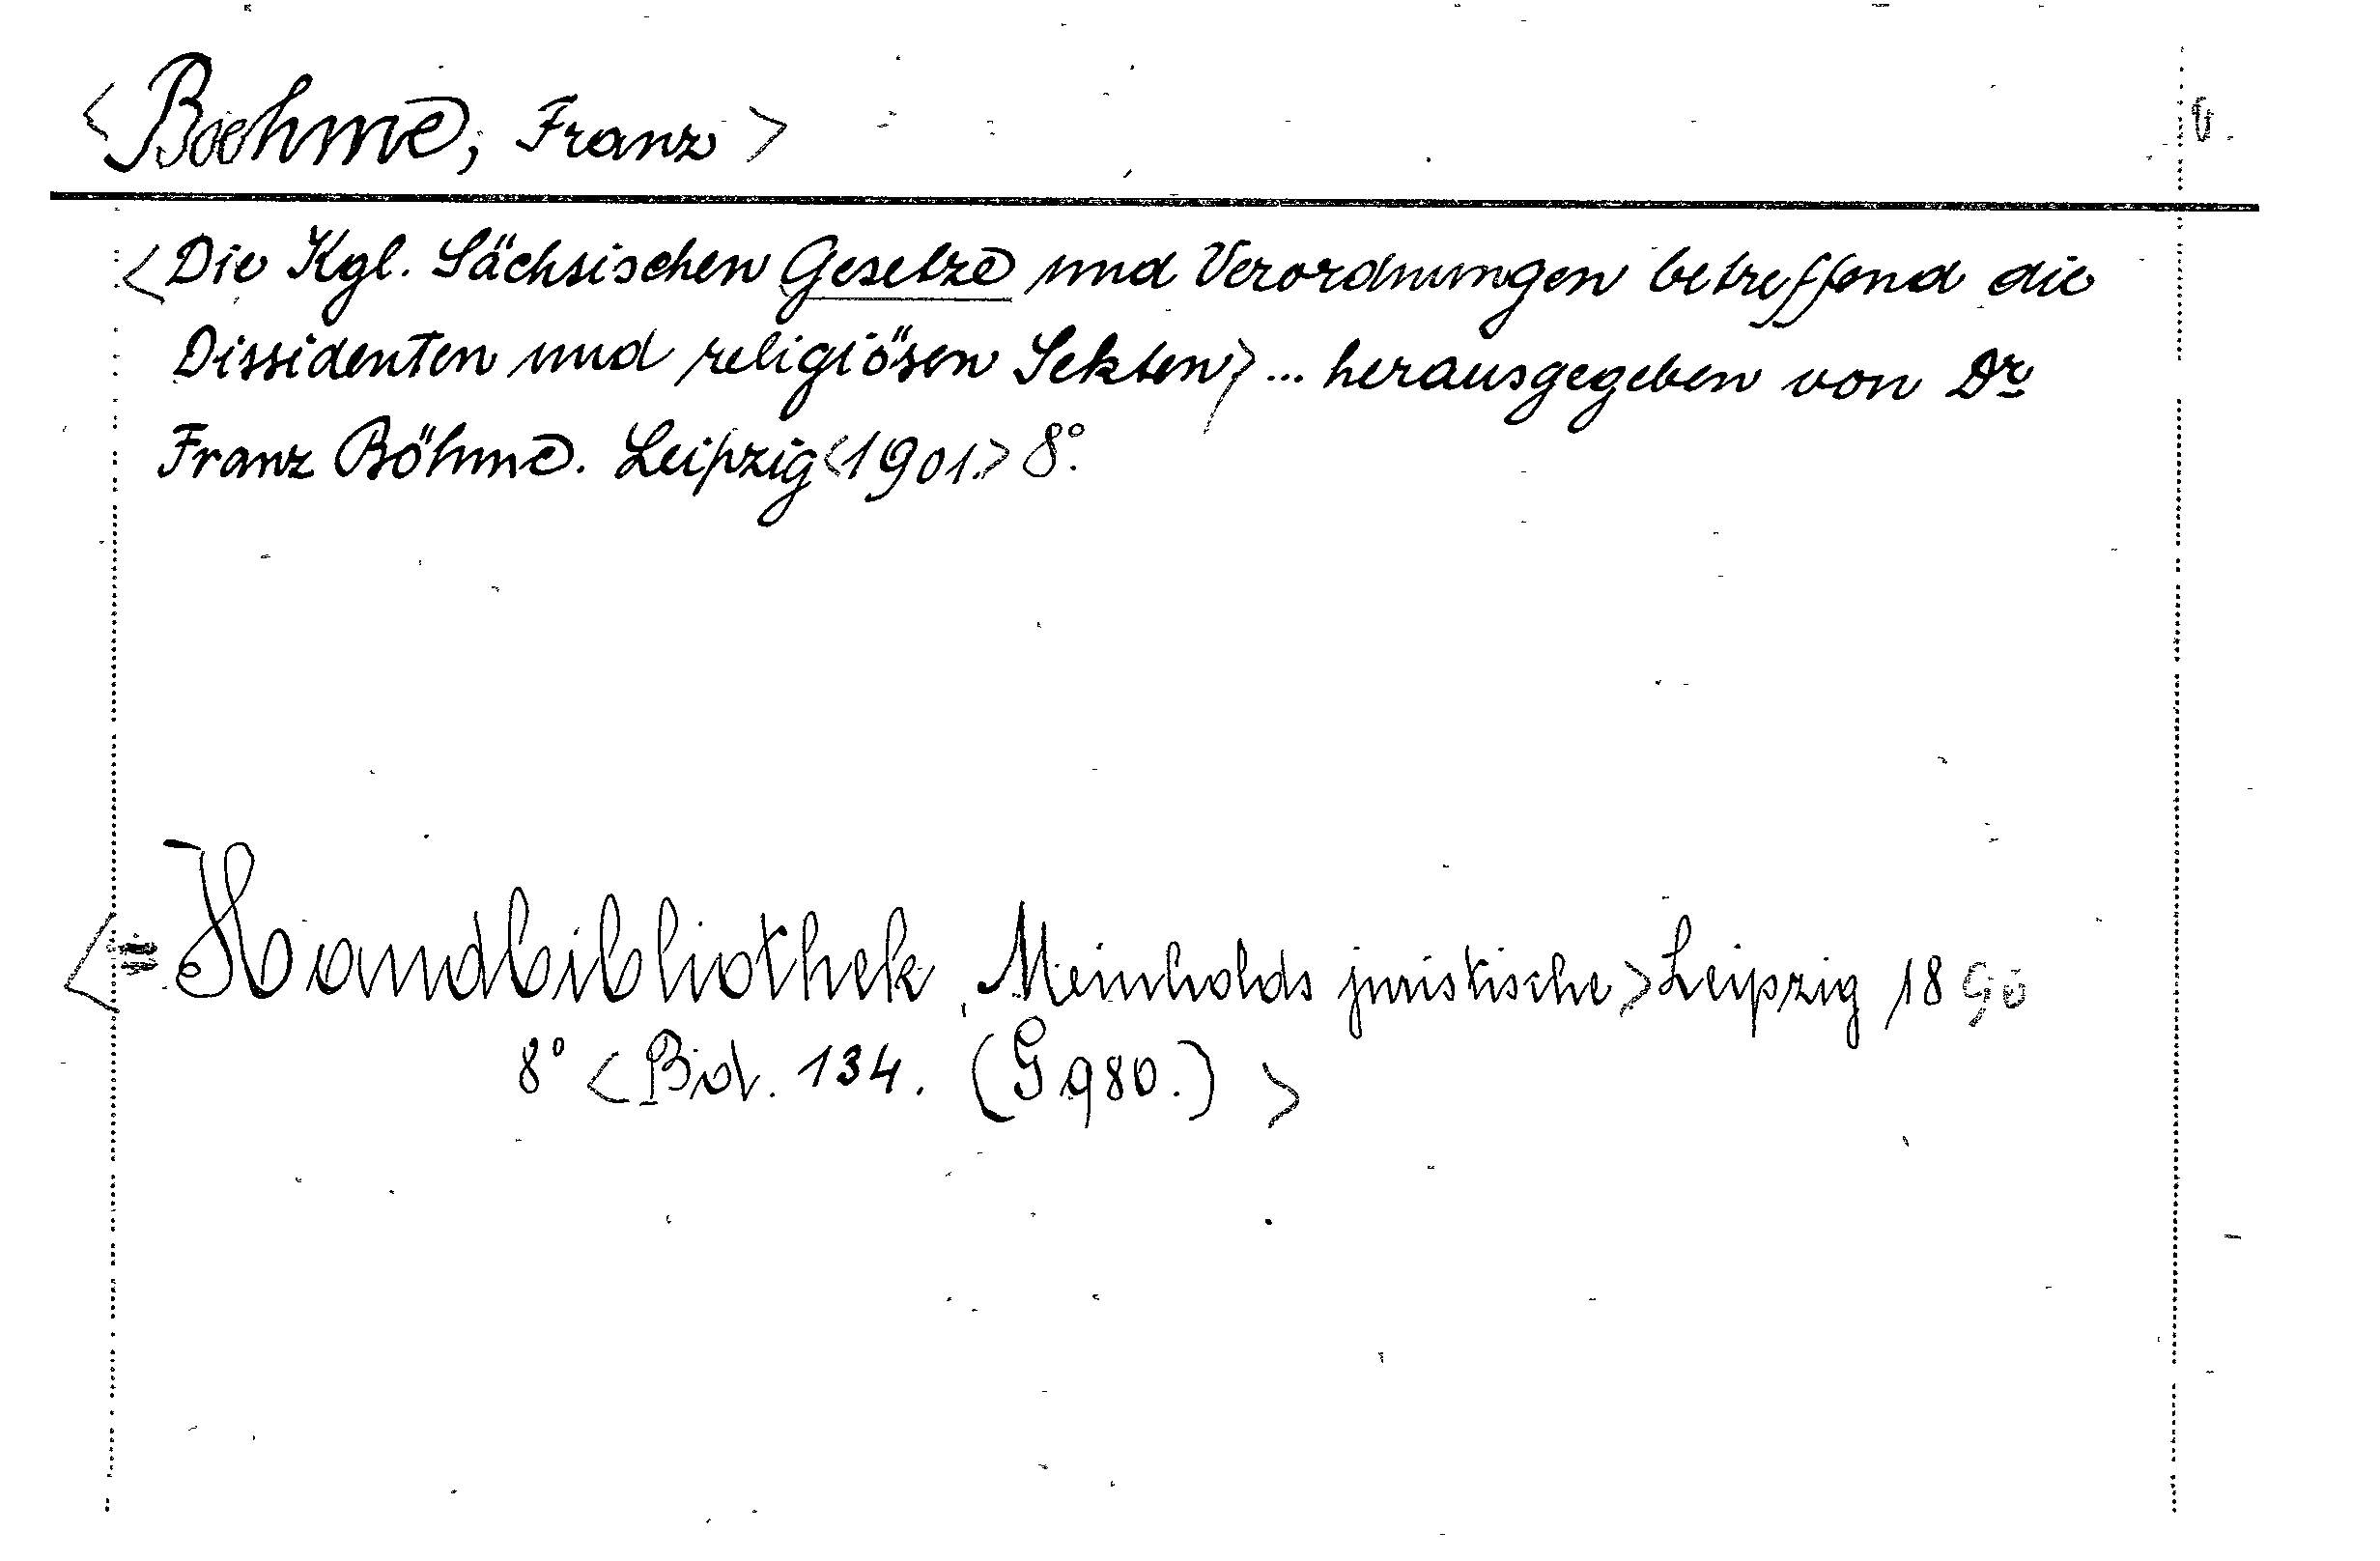 <Boehme, Franz>
<Die Kgl. Sächsischen Gesetze und Verordnungen betreffend die
Dissidenten und religiösen Sekten> ... herausgegeben von Dr
Franz Böhme. Leipzig <1901.> 8°.
<= Handbibliothek, Meinholds juristische> Leipzig 1890
8° <Bd. 134. (G 980.)>